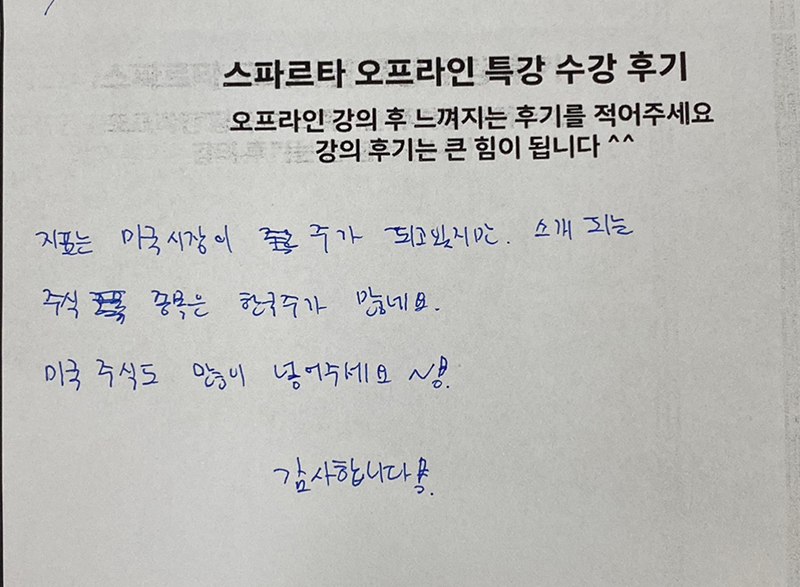 스파르타 오프라인 특강 수강 후기
오프라인 강의 후 느껴지는 후기를 적어주세요
강의 후기는 큰 힘이 됩니다 ^^
지표는 미국시장이 주가 되고있지만. 소개 되는
주식 종목은 한국주가 많네요.
미국 주식도 많이 넣어주세요 ~!
감사합니다!